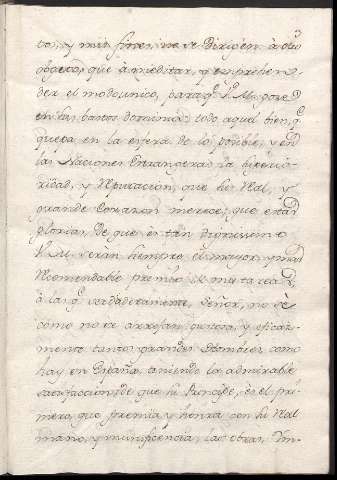 tos, y mis fines, no se dirigen à otro
objeto, que à meditar, y emprehen-
der el modo unico, para q.e V. M. goze
en tan bastos dominios todo aquel bien, q.e
quepa en la esfera de lo posible, y en
las Naciones Extrangeras la
y Reputacion, que su Real, y
grande Corazon merece; que estas
glorias, de que es tan
V. M. serán siempre el mayor, y mas
Recomendable premio de mi tarea,
à la q.e verdaderamente, Señor, no sè
como no se arrojan gustosa, y eficaz-
mente tantos grandes Hombres, como
hay en España, teniendo la admirable
satisfaccion, de que su Principe, es el pri-
mero, que premia, y honra con su Real
mano, y munificencia, las obras,